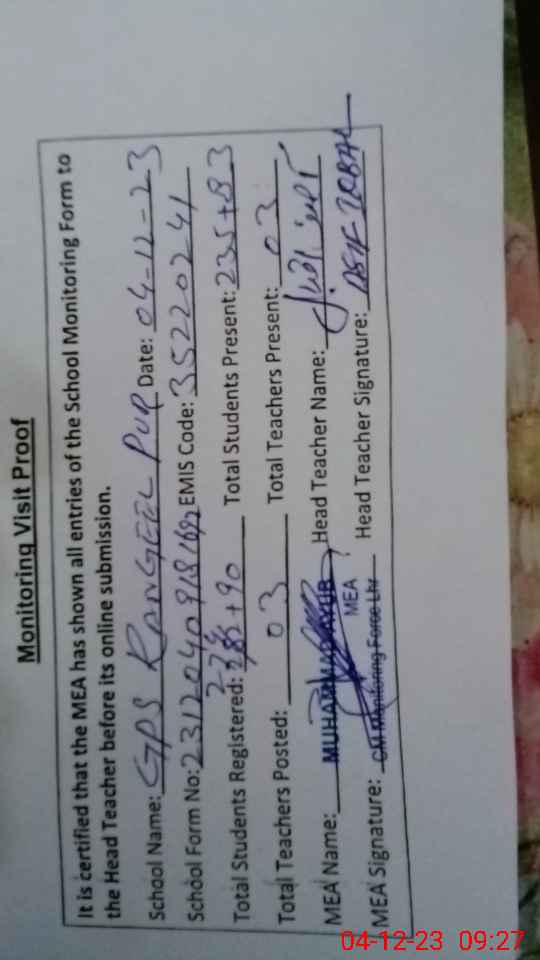 Monitoring Visit Proof
It is certified that the MEA has shown all entries of the School Monitoring Form to
the Head Teacher before its online submission.
School Name: GPS RANGEEL PUR Date: 04-12-23
School Form No: EMIS Code: 35220241
Total Students Registered: +90 Total Students Present: 235+83
Total Teachers Posted: 03 Total Teachers Present: 03
MEA Name: MUHAMMAD AYUB Head Teacher Name:
MEA
MEA Signature: CM Monitoring Force Lhr Head Teacher Signature: ASIF IQBAL
04-12-23 09:27